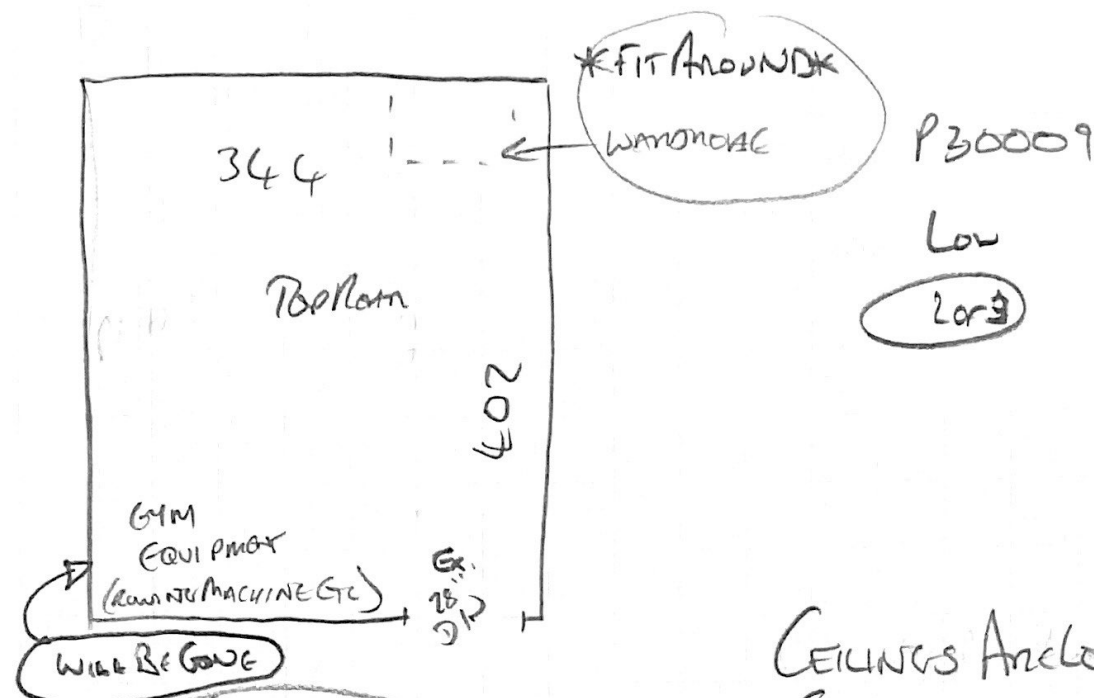 *FIT AROUND*
WARDROBE
P30009
LOW
344
2 or 3
TOP ROOM
402
GYM
EQUIPMENT
(ROWING MACHINE ETC)
EX.
28
D
WILL BE GONE
CEILINGS ARE LO